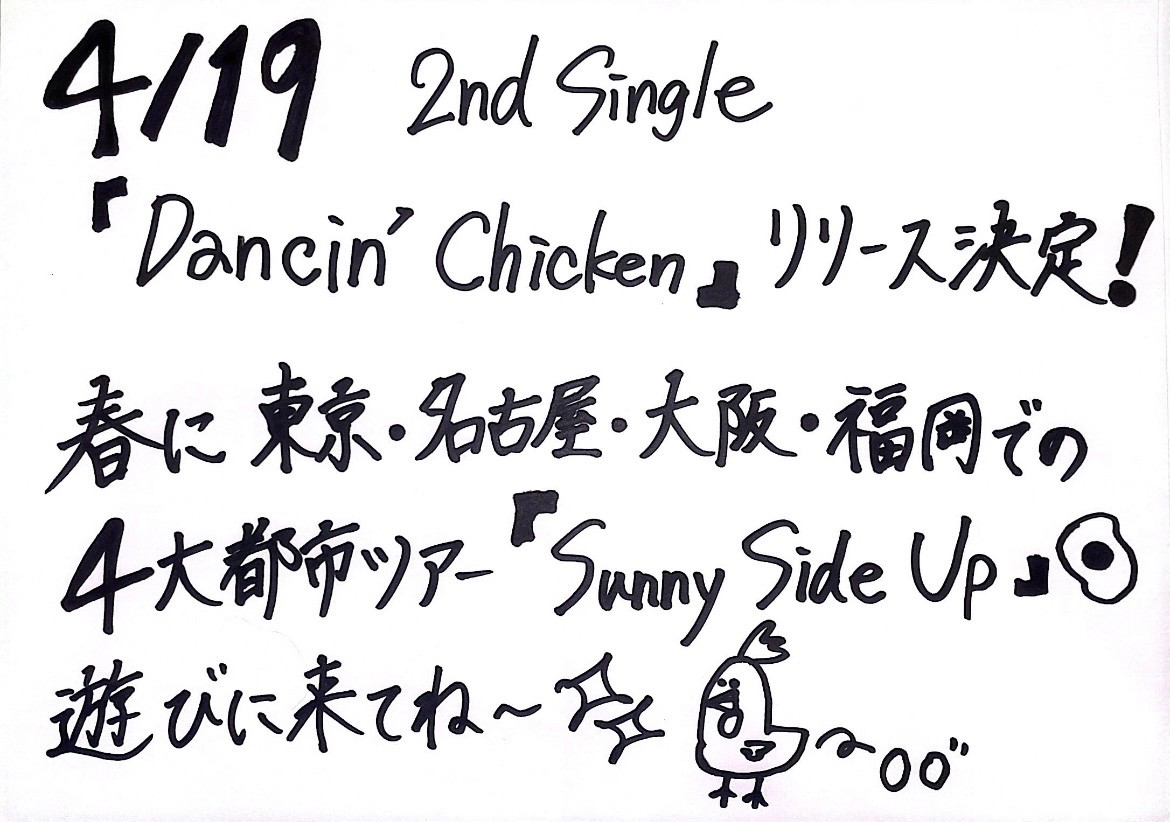 4/19 2nd Single
『Dancin' Chicken』リリース決定!
春に東京・名古屋・大阪・福岡での
4大都市ツアー『Sunny Side Up』
遊びに来てね〜